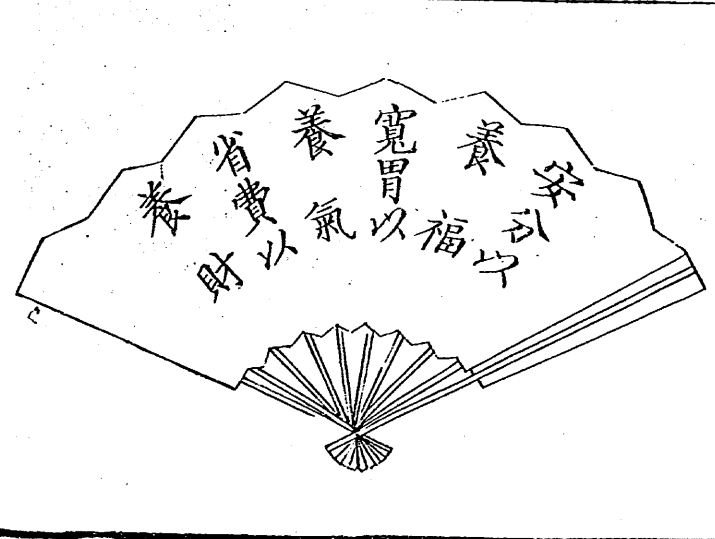 安分以
養福
寬胃以
養氣
省費以
養財